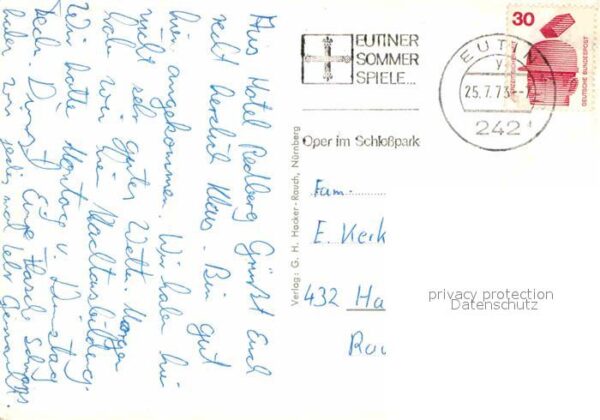 Aus Hotel Redberg Grüßt Euch
recht herzlich Klaus. Bin gut
hier angekommen. Wir haben hier
nicht sehr gutes Wetter. Morgen
haben wir hier Nachtausbildung.
Wir hatte Montag u. Dinstag
Tech. Dinst. Eine Flasche Schnaps
haben wir jedes mal leer
EUTINER
SOMMER
SPIELE...
Oper im Schloßpark
EUTIN
y
25.7.73
242
30
DEUTSCHE BUNDESPOST
Verlag: G. H. Hacker-Rauch, Nürnberg
Fam.
E. Kerk
432 Ha
privacy protection
Datenschutz